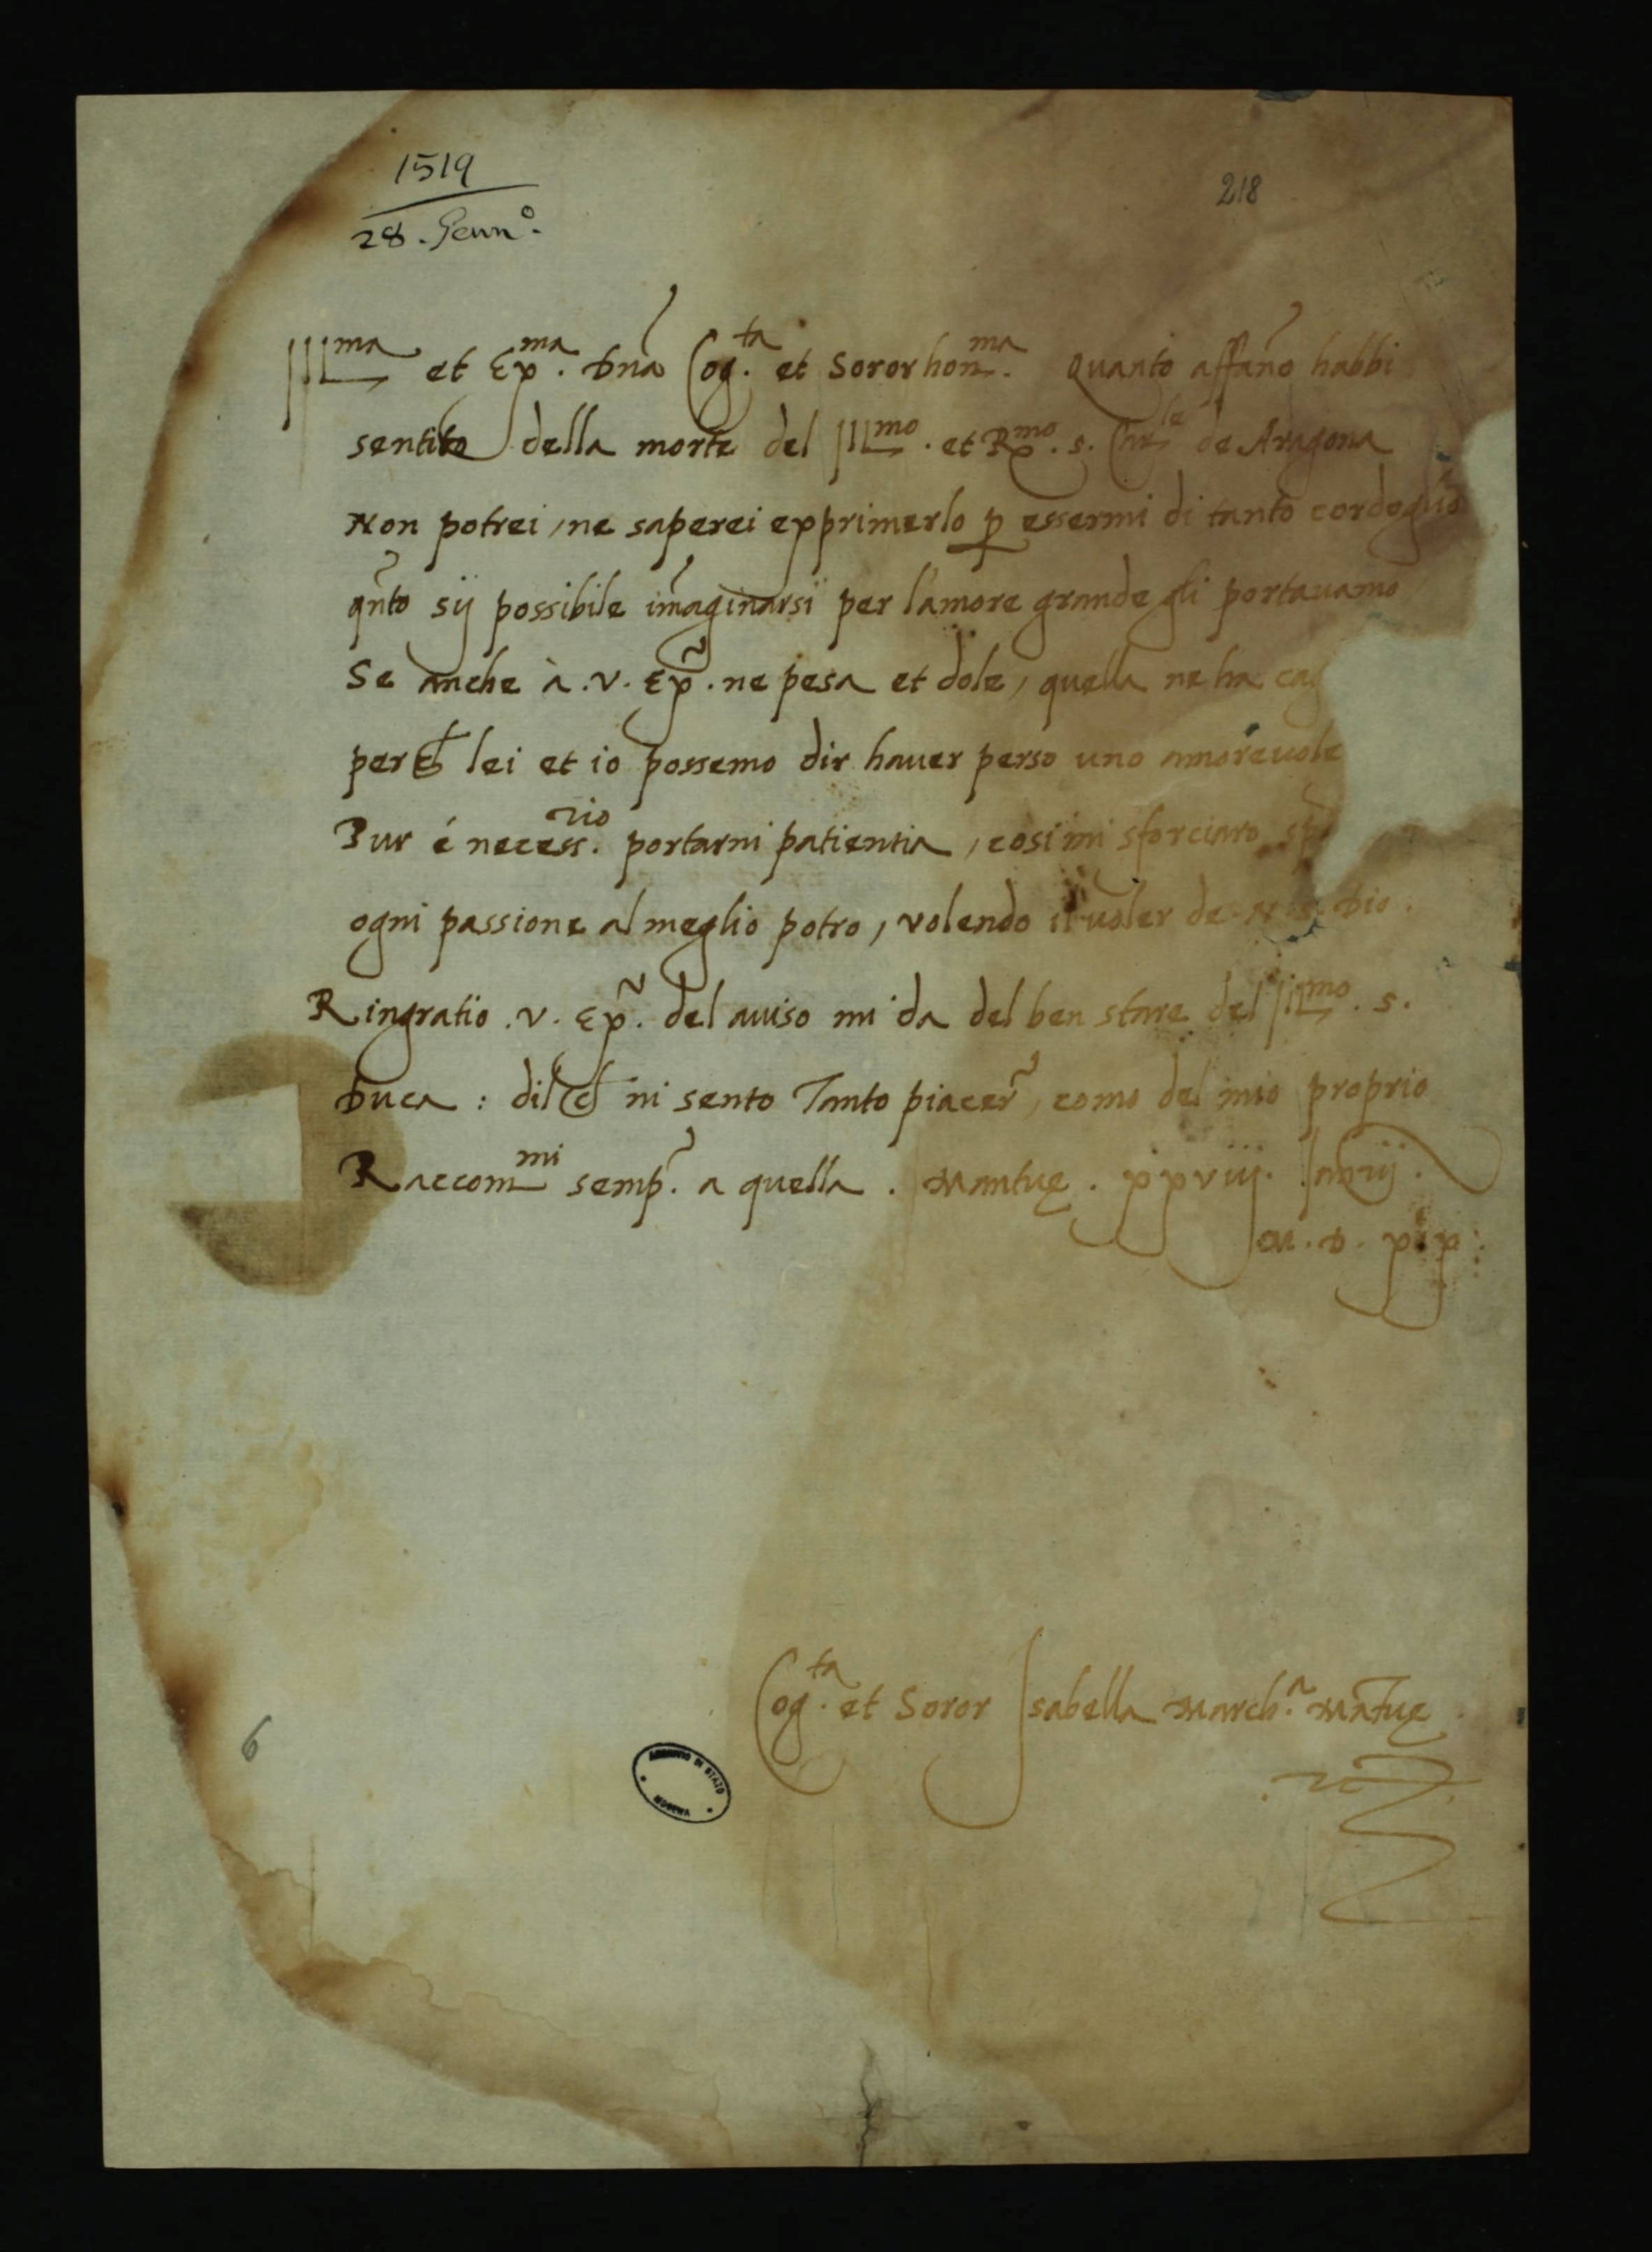 1519
28. Genn.º
218
Ill.ma et Ex.ma Dña Cog.ta et Soror hon.ma Quanto affaño habbi
sentito della morte del Ill.mo et R.mo s. Car.le de Aragona
Non potrei, ne saperei exprimerlo ꝑ essermi di tanto cordoglio
qñto sij possibile im̃aginarsi per l'amore grande gli portauamo
Se anche à .V. Ex̃. ne pesa et dole, quella ne ha cag
perch lei et io possemo dir hauer perso uno amoreuole
Pur é necess.rio portarni patientia, cosi mi sforciaro
ogni passione al meglio potro, volendo il uoler de N. S. Dio.
Ringratio .V. Ex̃. del auiso mi da del ben stare del Ill.mo s.
Duca : dil ch ni sento Tanto piacer̃, como del mio proprio
Raccom.mi semp̃. a quella . Mantuę . xxviij. Ianrij.
M . D . xix
Cog.ta et Soror Isabella March.a Mãtuę
6
ARCHIVIO DI STATO
MODENA